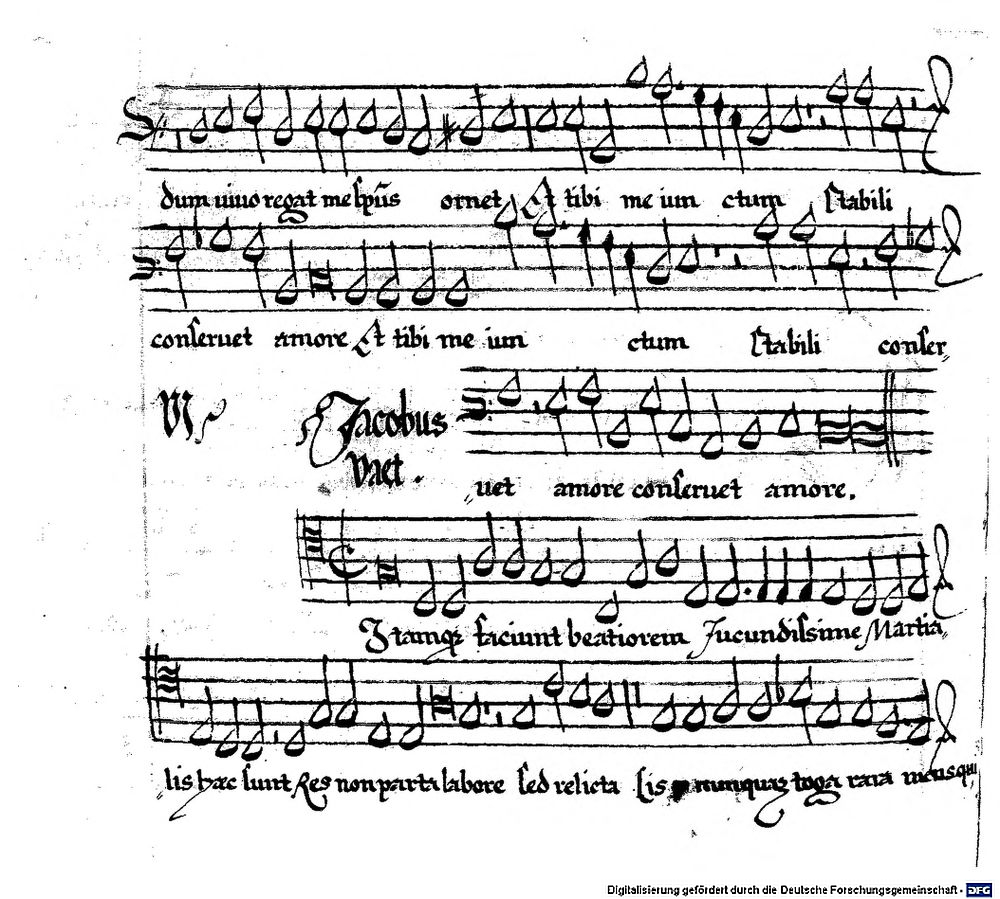 dum uiuo regat me spũs ornet Et tibi me iun ctum stabili
conseruet amore Et tibi me iun ctum stabili conser
Jacobus
Vaet.
uet amore conseruet amore.
Vitamq; faciunt beatiorem Jucundissime Martia
lis hæc sunt Res non parta labore sed relicta Lis nunquaȝ toga rara mens qui
Digitalisierung gefördert durch die Deutsche Forschungsgemeinschaft - DFG